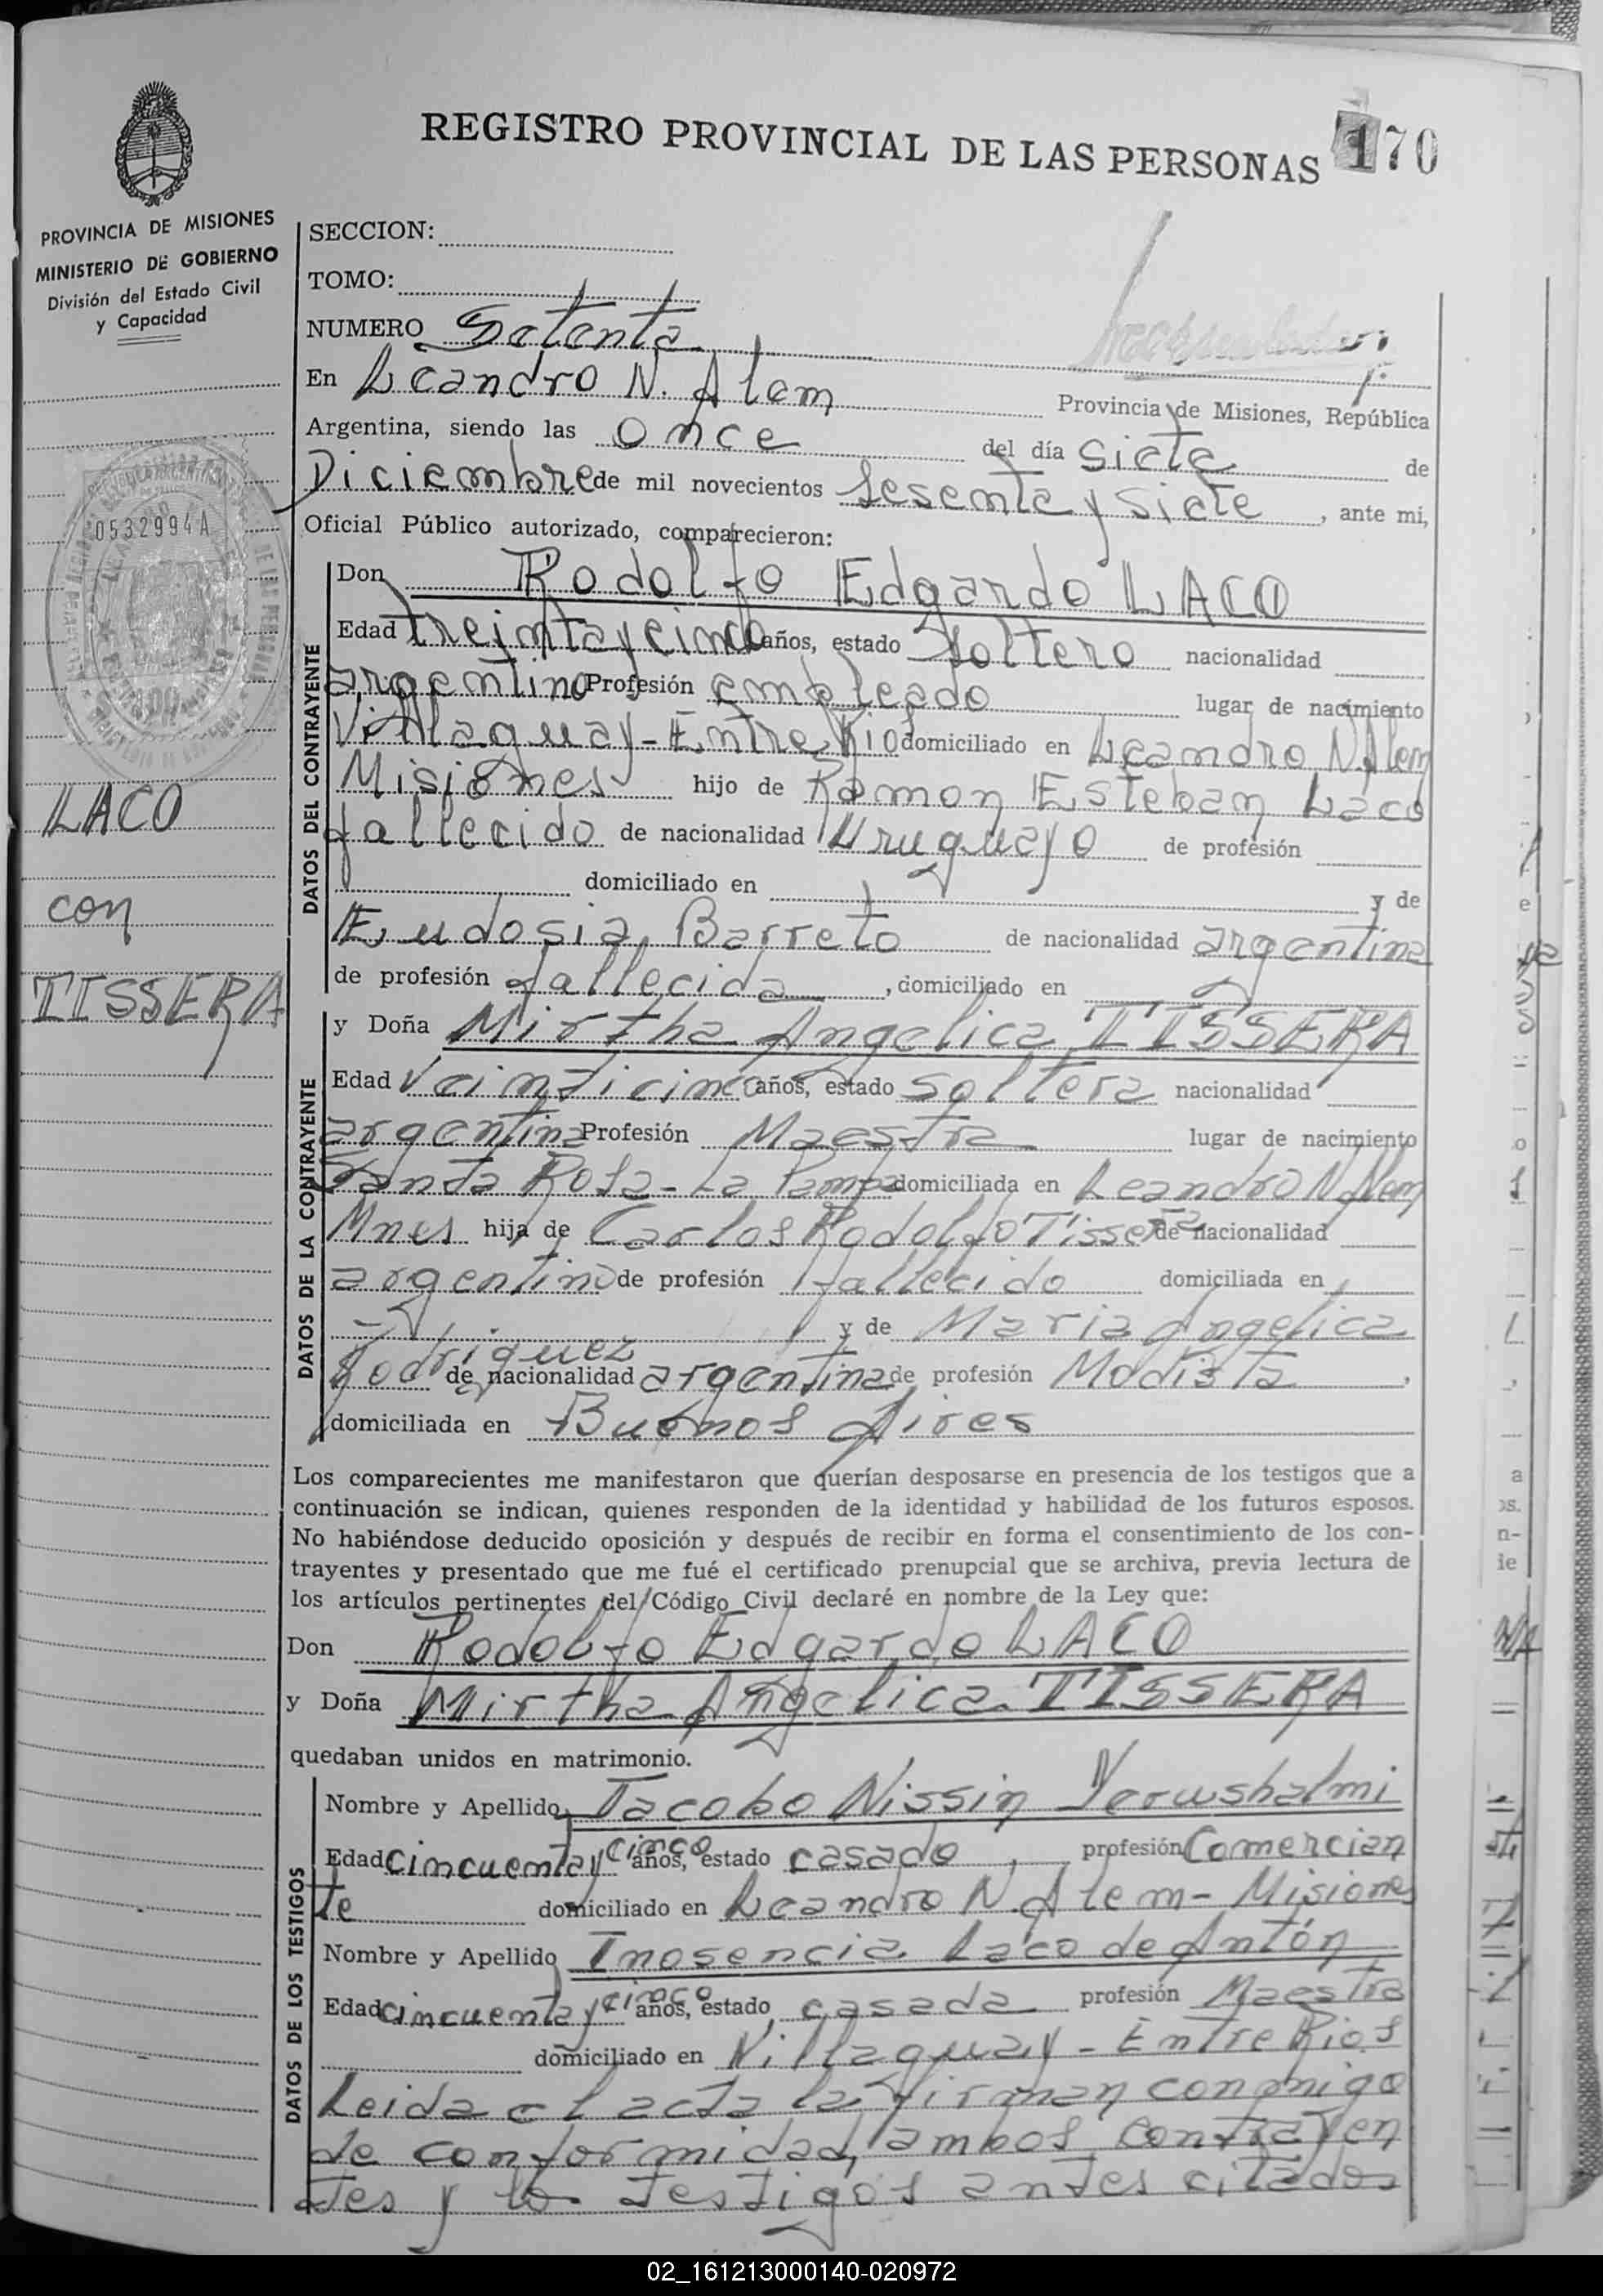 REGISTRO PROVINCIAL DE LAS PERSONAS 170
PROVINCIA DE MISIONES
MINISTERIO DE GOBIERNO
División del Estado Civil
y Capacidad
0532994A
LACO
con
TISSERA
SECCION:
TOMO:
NUMERO Setenta
En Leandro N. Alem Provincia de Misiones, República
Argentina, siendo las once del día siete de
Diciembre de mil novecientos sesenta y siete, ante mi,
Oficial Público autorizado, comparecieron:
DATOS DEL CONTRAYENTE
Don Rodolfo Edgardo LACO
Edad treinta y cinco años, estado Soltero nacionalidad
argentino Profesión empleado lugar de nacimiento
Villaguay - Entre Rios domiciliado en Leandro N. Alem
Misiones hijo de Ramon Esteban Laco
fallecido de nacionalidad Uruguayo de profesión
domiciliado en y de
Eudosia Barreto de nacionalidad argentina
de profesión fallecida, domiciliado en
DATOS DE LA CONTRAYENTE
y Doña Mirtha Angelica TISSERA
Edad Veinticinco años, estado soltera nacionalidad
argentina Profesión Maestra lugar de nacimiento
Santa Rosa - La Pampa domiciliada en Leandro N Alem
Mnes hija de Carlos Rodolfo Tissera de nacionalidad
argentino de profesión fallecido domiciliada en
y de Maria Angelica
Rodriguez de nacionalidad argentina de profesión Modista,
domiciliada en Buenos Aires
Los comparecientes me manifestaron que querían desposarse en presencia de los testigos que a
continuación se indican, quienes responden de la identidad y habilidad de los futuros esposos.
No habiéndose deducido oposición y después de recibir en forma el consentimiento de los con-
trayentes y presentado que me fué el certificado prenupcial que se archiva, previa lectura de
los artículos pertinentes del Código Civil declaré en nombre de la Ley que:
Don Rodolfo Edgardo LACO
y Doña Mirtha Angelica TISSERA
quedaban unidos en matrimonio.
DATOS DE LOS TESTIGOS
Nombre y Apellido Jacobo Nissin Yerushalmi
Edad cincuenta y cinco años, estado casado, profesión Comercian
te domiciliado en Leandro N. Alem - Misiones
Nombre y Apellido Inosencia Laco de Antón
Edad cincuenta y cinco años, estado casada profesión Maestra
domiciliado en Villaguay - Entre Rios
Leida el acta la firman conmigo
de conformidad, ambos contrayen
tes y los testigos antes citados
02_161213000140-020972